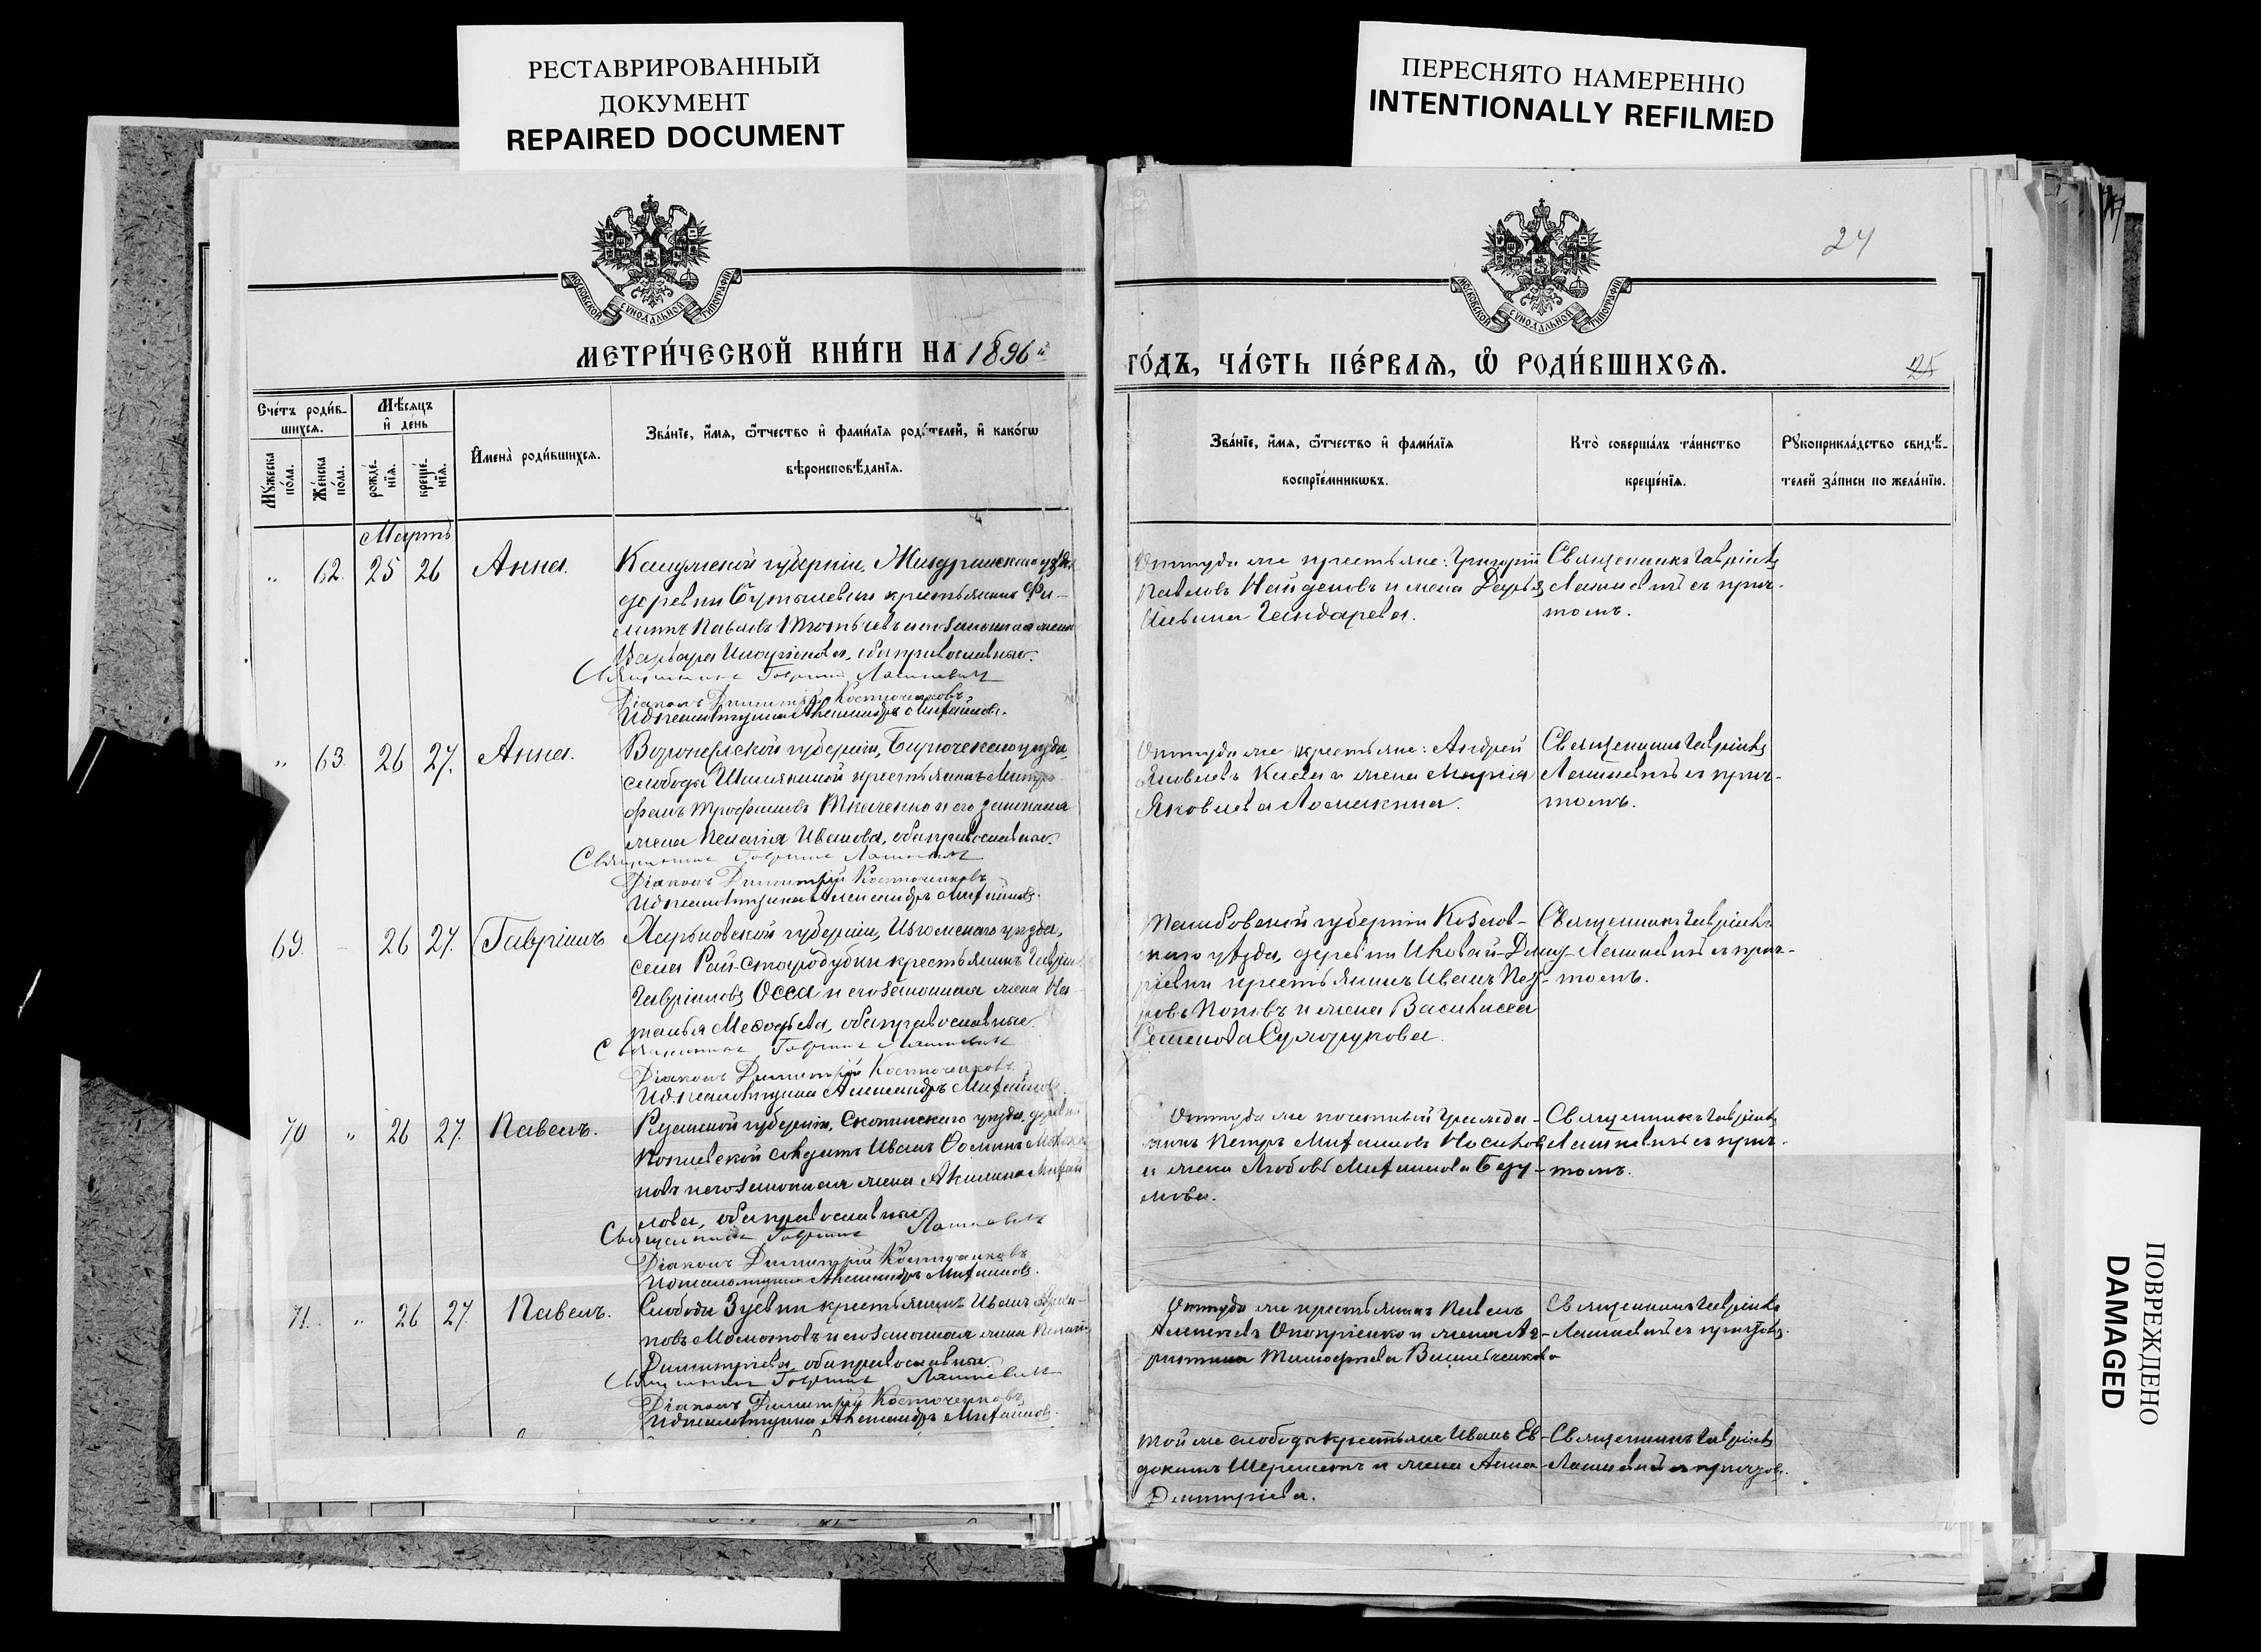 РЕСТАВРИРОВАННЫЙ
ДОКУМЕНТ
REPAIRED DOCUMENT
ПЕРЕСНЯТО НАМЕРЕННО
INTENTIONALLY REFILMED
24
МОСКОВСКОЙ СѴНОДАЛЬНОЙ ТИПОГРАФІИ
МОСКОВСКОЙ СѴНОДАЛЬНОЙ ТИПОГРАФІИ
МЕТРИ́ЧЕСКОЙ КНИ́ГИ НА 1896й
ГО́ДЪ, ЧА́СТЬ ПЕ́РВАѦ, Ѡ҆ РОДИ́ВШИХСѦ.
25
Сче́тъ роди́в-
шихсѧ.
Мꙋ́жеска по́ла.
Же́нска по́ла.
Мѣ́сѧцъ
и҆ де́нь
рожде́-
нїѧ.
креще́-
нїѧ.
И҆мена̀ роди́вшихсѧ.
Зва́нїе, и҆́мѧ, ѻ҆́тчество и҆ фами́лїѧ роди́телей, и҆ како́гѡ
вѣроисповѣ́данїѧ.
Зва́нїе, и҆́мѧ, ѻ҆́тчество и҆ фами́лїѧ
воспрїе́мникѡвъ.
Кто̀ соверша́лъ та́инство
креще́нїѧ.
Рꙋкоприкла́дство свидѣ́-
телей за́писи по жела́нїю.
Мартъ
„ 62. 25 26 Анна.
Калужской губерніи, Жиздринскаго уѣзда
деревни крестьянинъ Фи-
липпъ Павловъ и его законная жена
Варвара Иларіонова, оба православные.
Священникъ Гавріилъ Лашкевичъ
Діаконъ Димитрій Косточенковъ
И.д. псаломщика Александръ Михайловъ.
Оттуда же крестьяне: Григорій
Павловъ Найденовъ и жена Дарья
Гандарева.
Священникъ Гавріилъ
Лашкевичъ съ прич-
томъ.
„ 63 26 27. Анна.
Воронежской губерніи, Бирюченскаго уѣзда,
слободы крестьянинъ Митро-
фанъ Трофимовъ Ткаченко и его законная
жена Пелагія Иванова, оба православные.
Священникъ Гавріилъ Лашкевичъ
Діаконъ Димитрій Косточенковъ
И.д. псаломщика Александръ Михайловъ.
Оттуда же крестьяне: Андрей
Яковлевъ и жена Марія
Яковлева Ломакина.
Священникъ Гавріилъ
Лашкевичъ съ прич-
томъ.
69. 26 27. Гавріилъ
Харьковской губерніи, Изюмскаго уѣзда,
села Рай-Стародубки крестьянинъ Гавріилъ
Гавріиловъ Осса и его законная жена На-
талья Меѳодьева, оба православные.
Священникъ Гавріилъ Лашкевичъ
Діаконъ Димитрій Косточенковъ
И.д. псаломщика Александръ Михайловъ.
Тамбовской губерніи Козлов-
скаго уѣзда, деревни
крестьянинъ Иванъ Пет-
ровъ Поповъ и жена Василисса
Семенова Сухорукова.
Священникъ Гавріилъ
Лашкевичъ съ прич-
томъ.
70 „ 26 27. Павелъ.
Рязанской губерніи, Скопинскаго уѣзда, деревни
солдатъ Иванъ Ѳоминъ
и его законная жена Акилина Михай-
лова, оба православные.
Священникъ Гавріилъ Лашкевичъ
Діаконъ Димитрій Косточенковъ
И.д. псаломщика Александръ Михайловъ.
Оттуда же почетный гражда-
нинъ Петръ Михаиловъ Носиковъ
и жена Любовь Михаилова
Священникъ Гавріилъ
Лашкевичъ съ прич-
томъ.
71. „ 26 27. Павелъ.
Слободы Зуевки крестьянинъ Иванъ
Мамонтовъ и его законная жена
Димитріева, оба православные.
Священникъ Гавріилъ Лашкевичъ
Діаконъ Димитрій Косточенковъ
И.д. псаломщика Александръ Михайловъ.
Оттуда же крестьянинъ Павелъ
Алексѣевъ Онопріенко и жена Аг-
рипина Тимофеева
Священникъ Гавріилъ
Лашкевичъ съ причтомъ.
Той же слободы крестьяне Иванъ Ев-
докимъ и жена Анна
Дмитріева.
Священникъ Гавріилъ
Лашкевичъ съ причтомъ.
ПОВРЕЖДЕНО
DAMAGED